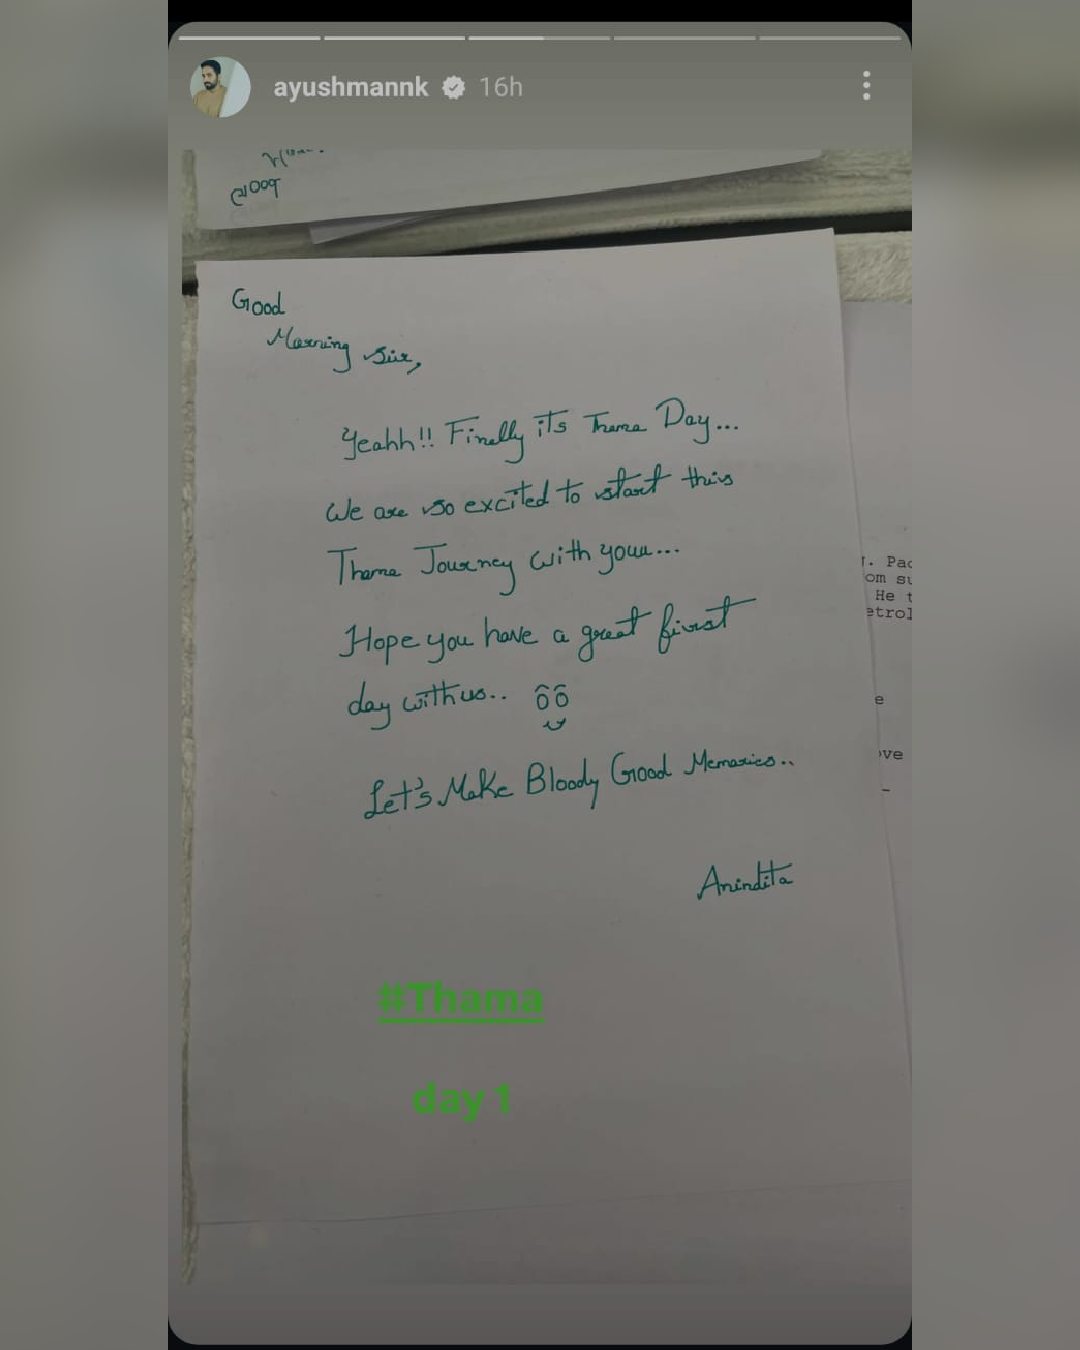 ayushmannk 16h
Good
Good
Morning Sir,
Yeahh!! Finally its Thama Day...
We are so excited to start this
Thama Journey with youu...
Hope you have a great first
day with us..
Let's Make Bloody Good Memories..
Anindita
#Thama
day 1
. Pac
om su
He t
etrol
e
ve
-